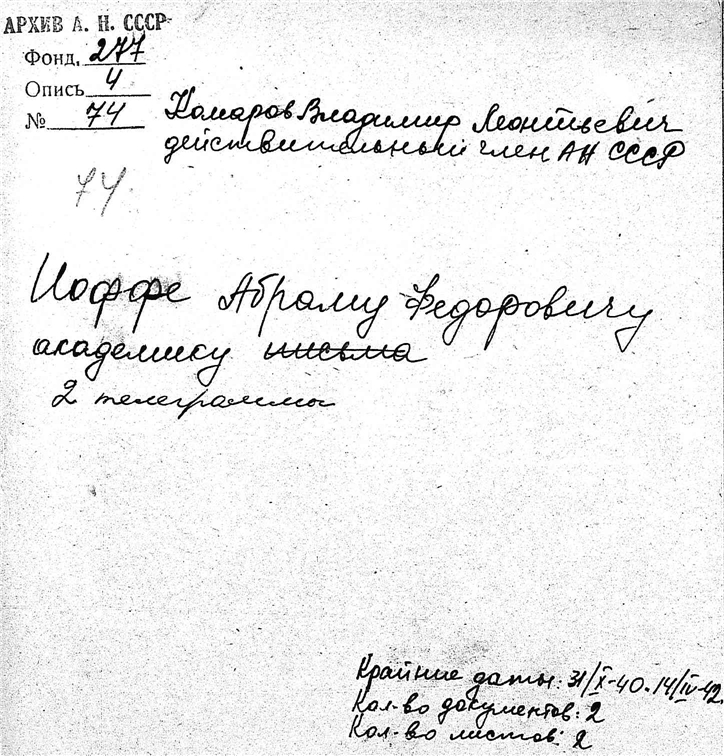 АРХИВ А. Н. СССР
Фонд. 277
Опись 4
№ 74
Комаров Владимир Леонтьевич
действительный член АН СССР
74
Иоффе Абраму Федоровичу
академику письма
2 телеграммы
Крайние даты: 31/X-40. 14/IV-42.
Кол-во документов: 2
Кол-во листов: 2